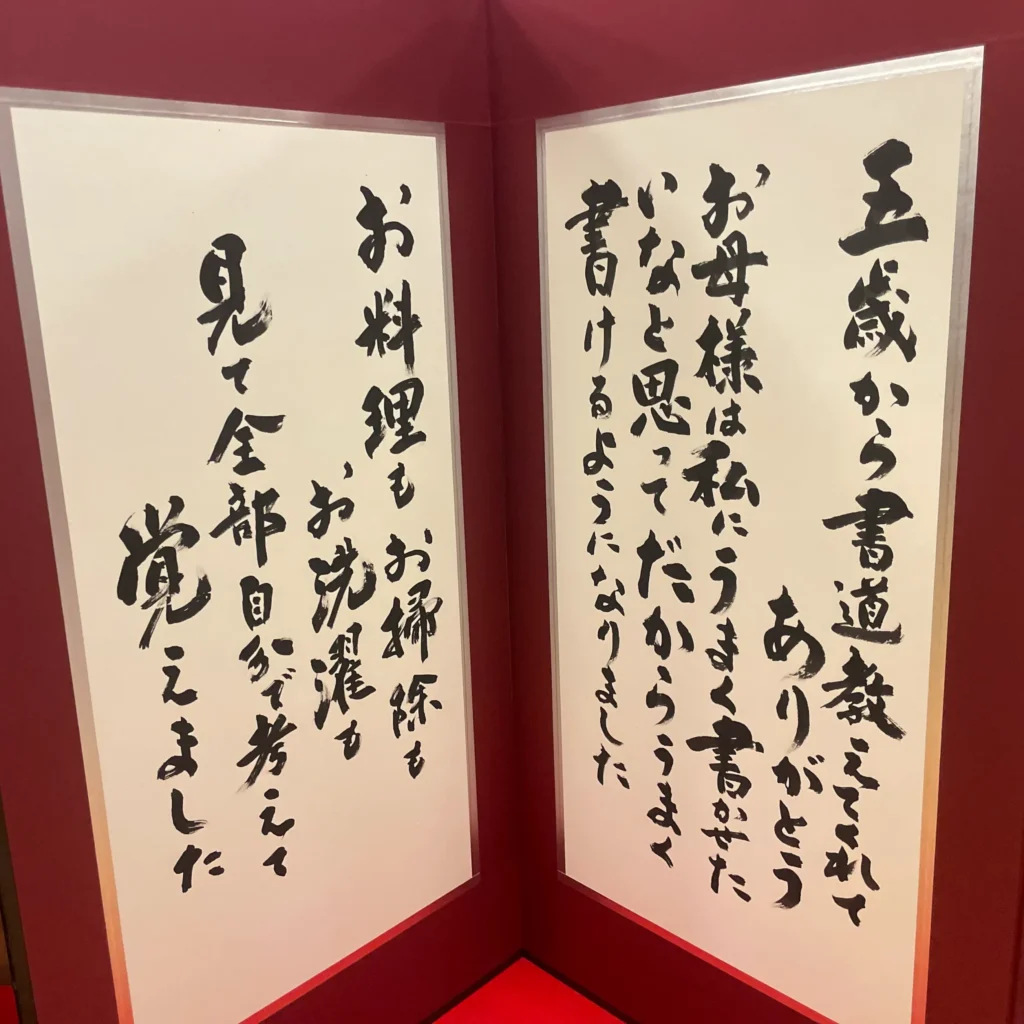 五歳から書道教えてくれて
ありがとう
お母様は私にうまく書かせた
いなと思ってだからうまく
書けるようになりました
お料理もお掃除も
お洗濯も
見て全部自分で考えて
覚えました